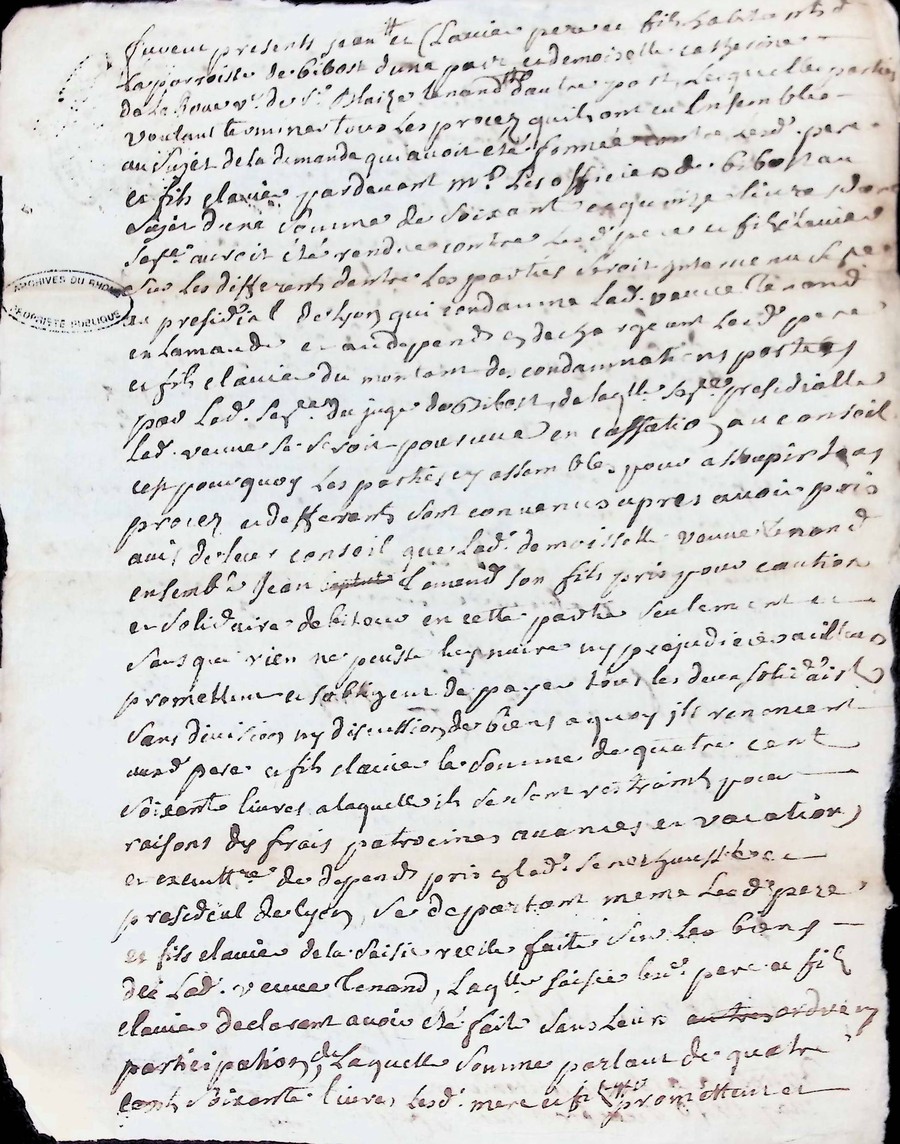 furent presents jean et Clavier pere et fils habitants d
La parroisse de bibost d'une part, et demoiselle catherine
de La Roue v.e de S.r Blaize Tenand d'autre part, Lesquelles parties
voulant terminer tous Les procez quils ont eu Ensemble
au Sujet de la demande qui avoit eté formée contre Lesd. pere
et fils clavier pardevant m.rs Les officiers de bibost au
Sujet d'une Somme de Soixante et quinze livres
Sent.e auroit été rendue contre Lesd. pere et fils Clavier
Sur Les differents d'entre Les parties Seroit intervenu
au presidial de Lyon qui condamne Lad. veuve Tenand
en Lamande et au depends en dechargeant Lesd. pere
et fils clavier du montant des condamnations portées
par Lad. Sent.e du juge de Bibost, de laq.lle Sent.e presidialle
Lad. veuve Se Seroit pourvue en cassation au conseil
cest pourquoy Les parties assemblées pour assoupir
procez et differents sont convenus apres avoir pris
avis de leur conseil que Lad. demoiselle veuve Tenand
ensemble Jean Tenand son fils pris pour caution
et Solidaire debiteur en cette partie Seulement et
Sans que rien ne puisse luy nuire ny prejudicier ailleurs
promettent et sobligent de payer tous les deux Solidairem.t
Sans division ny discussion de biens a quoy ils renoncent
auxd. pere et fils clavier la Somme de quatre cent
Soixante livres a laquelle ils se sont restraint pour
raisons des frais patrocines avances et vacations
et de depends pris Lad. Senechaussée et
presidial de Lyon, Se departant meme Lesd. pere
et fils clavier de la Saisie reelle faite Sur Les biens
de Lad. veuve Tenand, Laq.lle Saisie Lesd. pere et fils
clavier declarent avoir été fait Sans leurs autres ordre ny
participation, de Laquelle Somme partant de quatre
cent Soixante livres Lesd. mere et fils promettent et
ARCHIVES DU RHONE
PROPRIÉTÉ PUBLIQUE